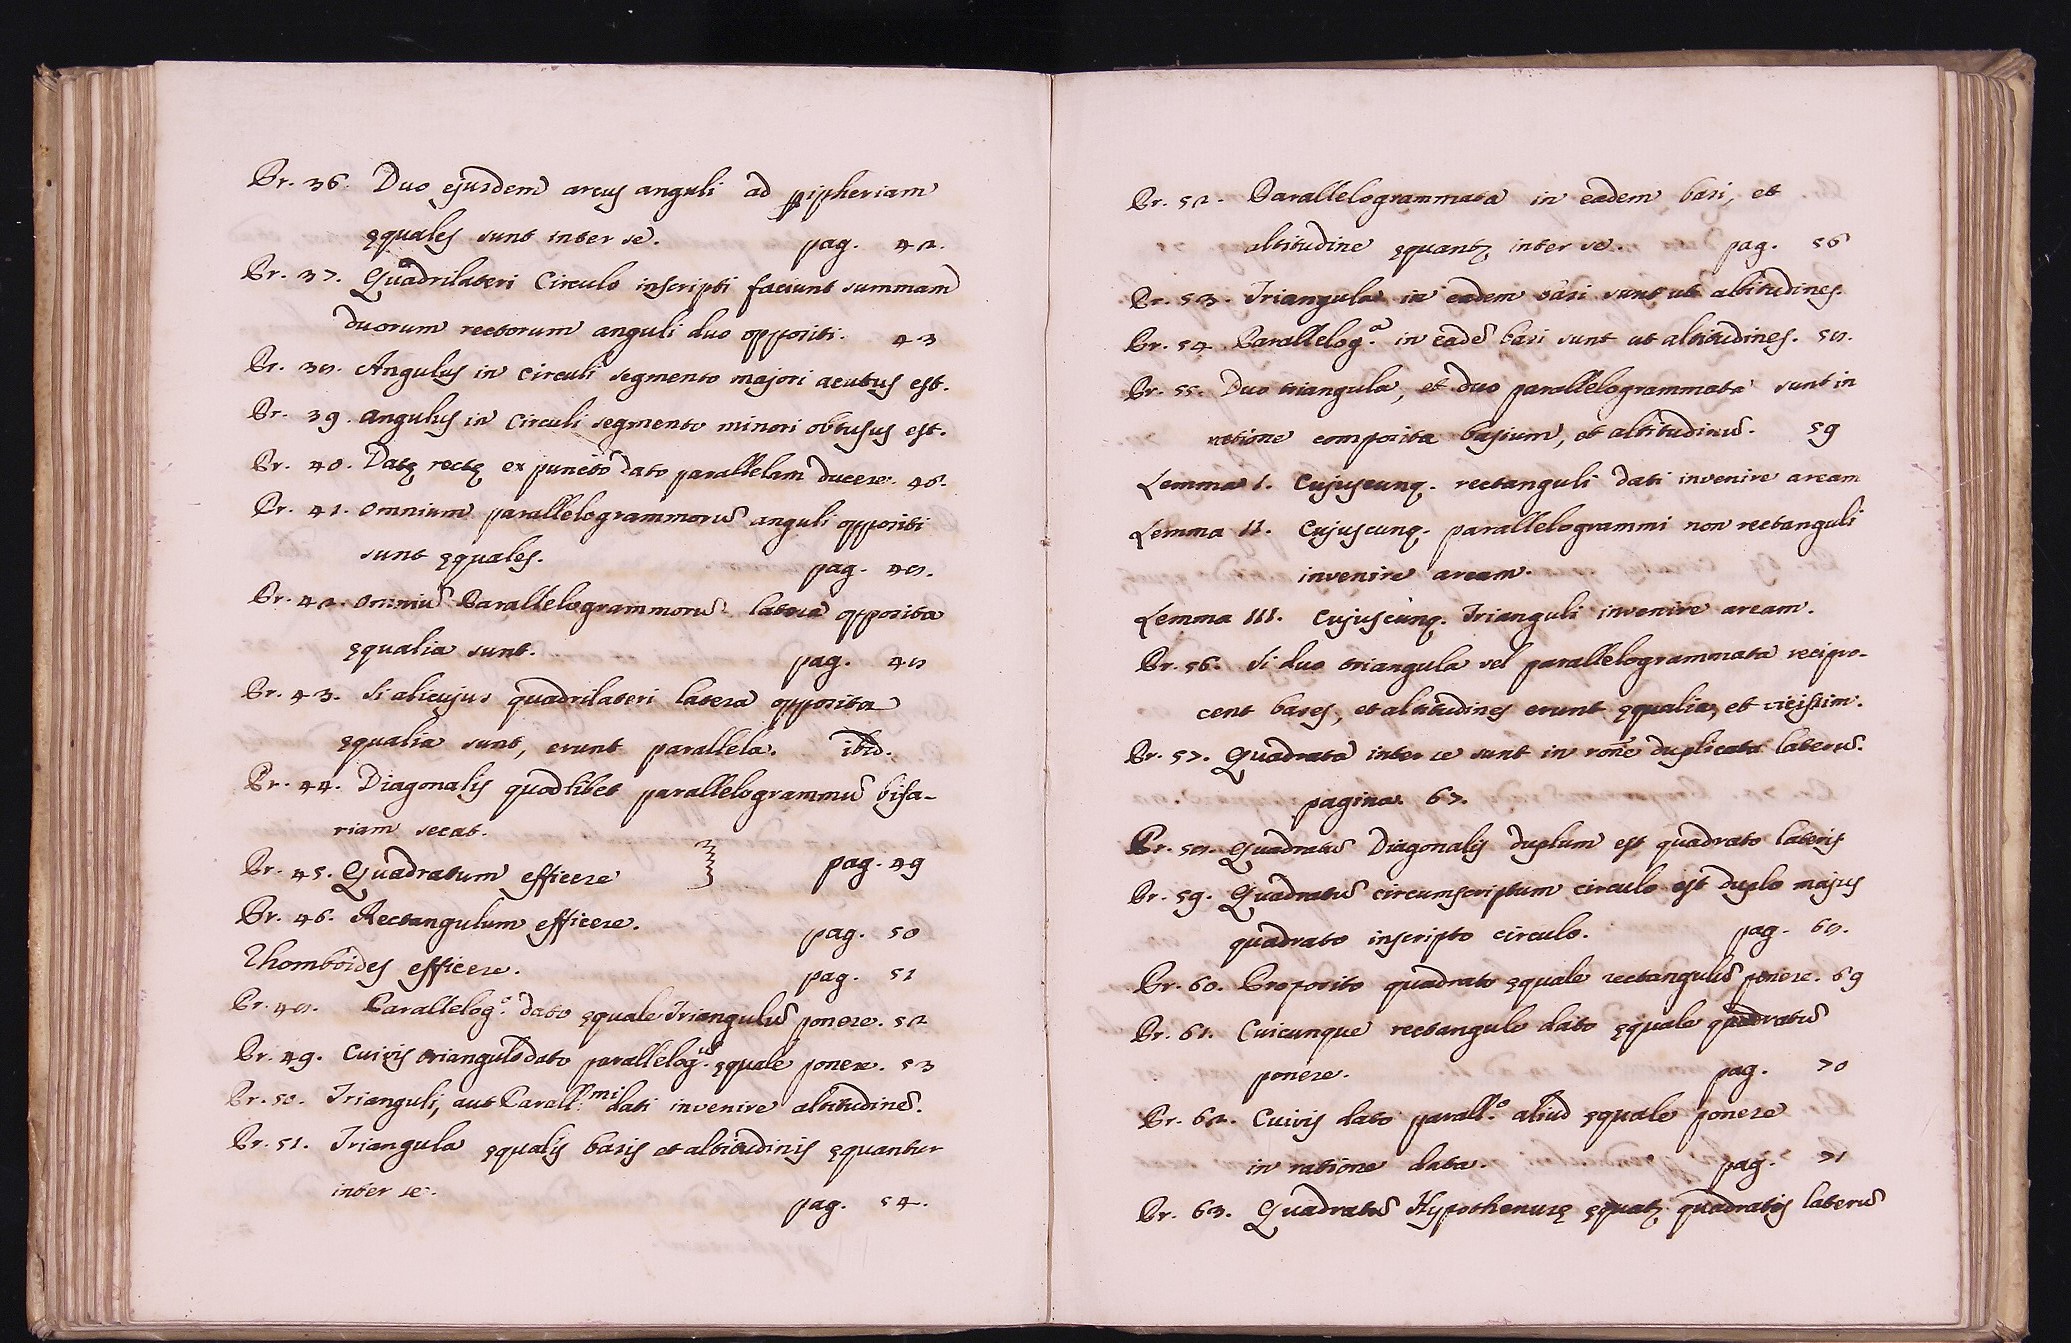 Pr. 36. Duo ejusdem arcus anguli ad pipheriam
ęquales sunt inter se. pag. 42.
Pr. 37. Quadrilateri Circulo inscripti faciunt summam
duorum rectorum anguli duo oppositi. 43
Pr. 38. Angulus in circuli segmento majori acutus est.
Pr. 39. angulus in Circuli segmento minori obtusus est.
Pr. 40. Datę rectę ex puncto dato parallelam ducere. 46.
Pr. 41. omnium parallelogrammorū anguli oppositi
sunt ęquales. pag. 48.
Pr. 42. omniū Parallelogrammorū latera opposita
ęqualia sunt. pag. 48
Pr. 43. Si alicujus quadrilateri latera opposita
ęqualia sunt, erunt parallela. ibid.
Pr. 44. Diagonalis quodlibet parallelogrammū bifa-
riam secat.
Pr. 45. Quadratum efficere } pag. 49
Pr. 46. Rectangulum efficere. pag. 50
Rhomboides efficere. pag. 51
Pr. 48. Parallelog.o dato ęquale Triangulū ponere. 52
Pr. 49. Cuivis triangulo dato parallelog.ū ęquale ponere. 53
Pr. 50. Trianguli, aut Parall.mi dati invenire altitudinē.
Pr. 51. Triangula ęqualis basis et altitudinis ęquantur
inter se. pag. 54.
Pr. 52. Parallelogrammata in eadem basi, et
altitudine ęquantʒ inter se. pag. 56
Pr. 53. Triangula in eadem basi sunt ut altitudines.
Pr. 54. Parallelog.a in eadē basi sunt ut altitudines. 58.
Pr. 55. Duo triangula, et duo parallelogrammata sunt in
ratione composita basium, et altitudinū. 59
Lemma I. Cujuscunq. rectanguli dati invenire aream
Lemma II. Cujuscunq. parallelogrammi non rectanguli
invenire aream.
Lemma III. Cujuscunq. Trianguli invenire aream.
Pr. 56. Si duo triangula vel parallelogrammata recipro-
cent bases, et altitudines erunt ęqualia, et vicissim.
Pr. 57. Quadrata inter se sunt in rone duplicata laterū.
pagina 67.
Pr. 58. Quadratū Diagonalis duplum est quadrato lateris
Pr. 59. Quadratū circumscriptum circulo est duplo majus
quadrato inscripto circulo. pag. 68.
Pr. 60. Proposito quadrato ęquale rectangulū ponere. 69
Pr. 61. Cuicunque rectangulo dato ęquale quadratū
ponere. pag. 70
Pr. 62. Cuivis dato parall.o aliud ęquale ponere
in ratione data. pag. 71
Pr. 63. Quadratū Hypothenusę ęquatʒ quadratis laterū